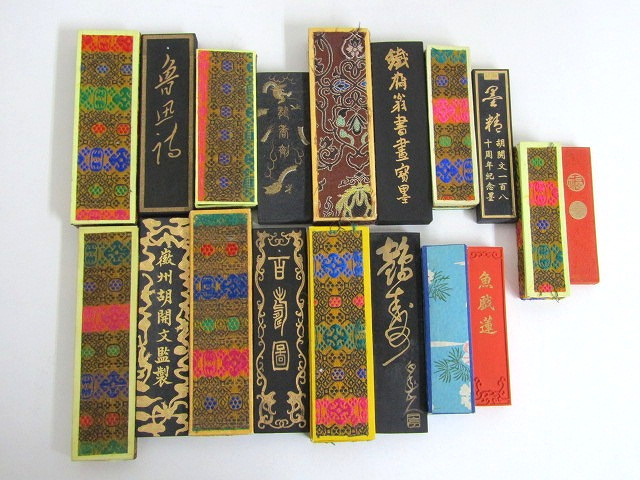 魯迅詩
龍香劑
鐵齋翁書畫寶墨
墨精
胡開文一百八
十周年紀念墨
徽州胡開文監製
百壽圖
鶴壽
魚戲蓮